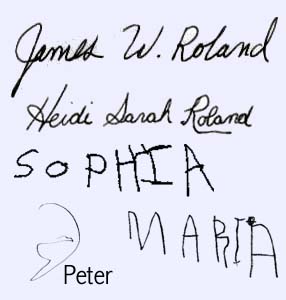 James W. Roland
Heidi Sarah Roland
SOPHIA
MARIA
Peter